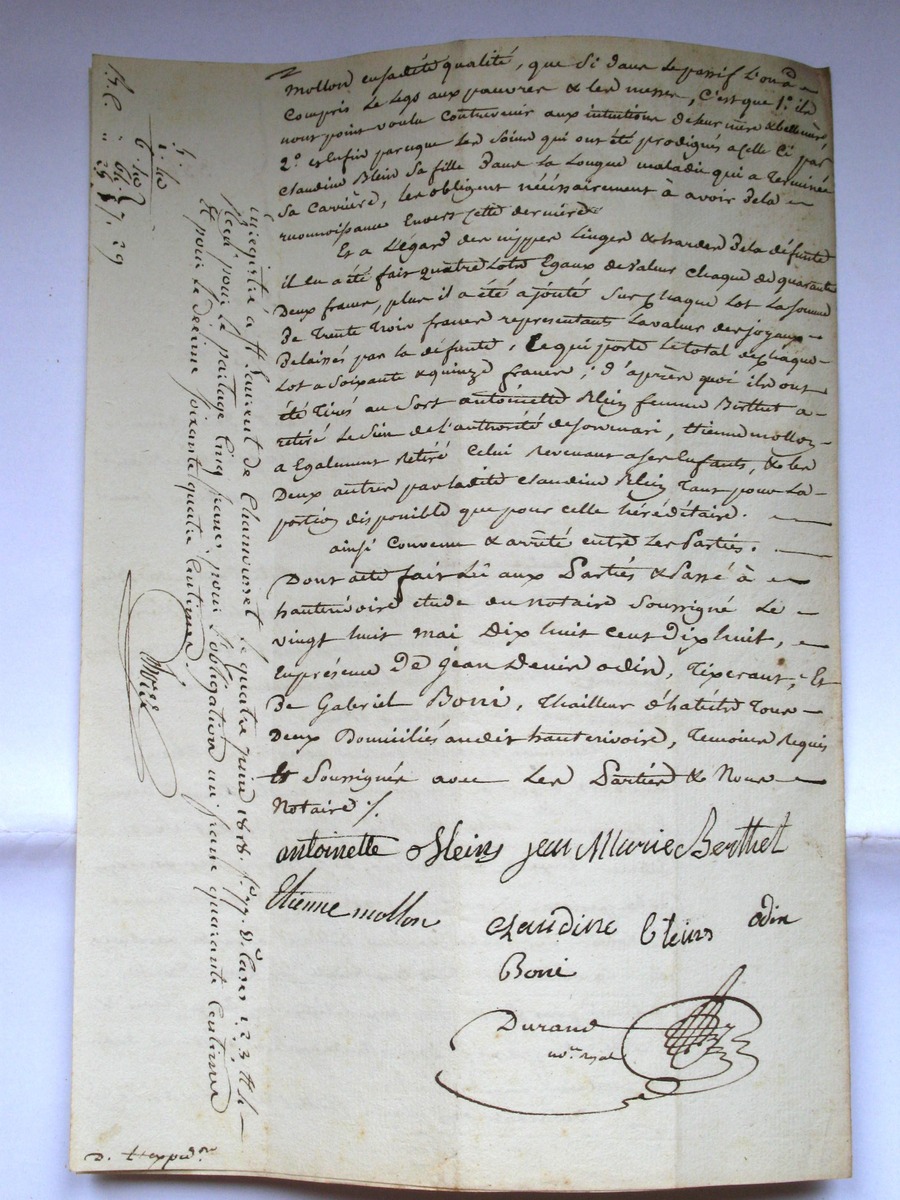 mollon ensadite qualité, que Si dans le passif l'on a
Compris Le Legs aux pauvres & les messes, C'est que 1.° ils
nont point voulu Contrevenir aux intentions de leur mere & bellemère,
2.° et Enfin parceque Les Soins qui ont été prodigués a Celle Ci par
Claudine Blein Sa fille Dans La Longue maladie qui a Terminée
Sa Carriere, les obligent nécéssairement à avoir De la
reconnoissance Envers Cette derniere.
Et a L'égard des nippes Linges & hardes De la défunte
il en a été fait quatre Lots Egaux de Valeur chaque de quarante
Deux francs, plus il a été ajouté Sur Chaque Lot La Somme
De Trente Trois francs representants La valeur des joyaux
Delaissés par la défunte, Ce qui porte Le total de chaque
Lot a Soixante & quinze francs; D'après quoi ils ont
été Tirés au Sort antoinette Blein femme Berthet a
retiré Le Sien de l'authorité de Son mari, Etienne mollon
a Egalement Retiré Celui Revenant a Ses Enfants, & les
Deux autres par ladite Claudine Blein Tant pour La
portion disponible que pour celle héréditaire.
ainsi Convenu & arrêté entre Les Parties.
Dont acte fait Lû aux Parties & Passé à
hauterivoire etude du notaire Soussigné Le
vingt huit mai Dix huit Cent Dix huit,
En présence De Jean Denis odin, Tixerant, Et
De Gabriel Boni, Thailleur d'habits Tous
Deux Domiciliés audit hauterivoire, Temoins Requis
Et Soussignés avec Les Parties & Nous
Notaire ./.
antoinette Bleins jean Marie Berthet
Etienne mollon
Claudine bleins odin
Boni
Durand
no.re royal
Enregistré a St Laurent de Chamousset le quatre juin 1818. f.°
Reçu pour le partage Cinq francs, pour l'obligation un franc quarante Centimes
& pour le décime soixante quatre Centimes.
D. Expéd.on